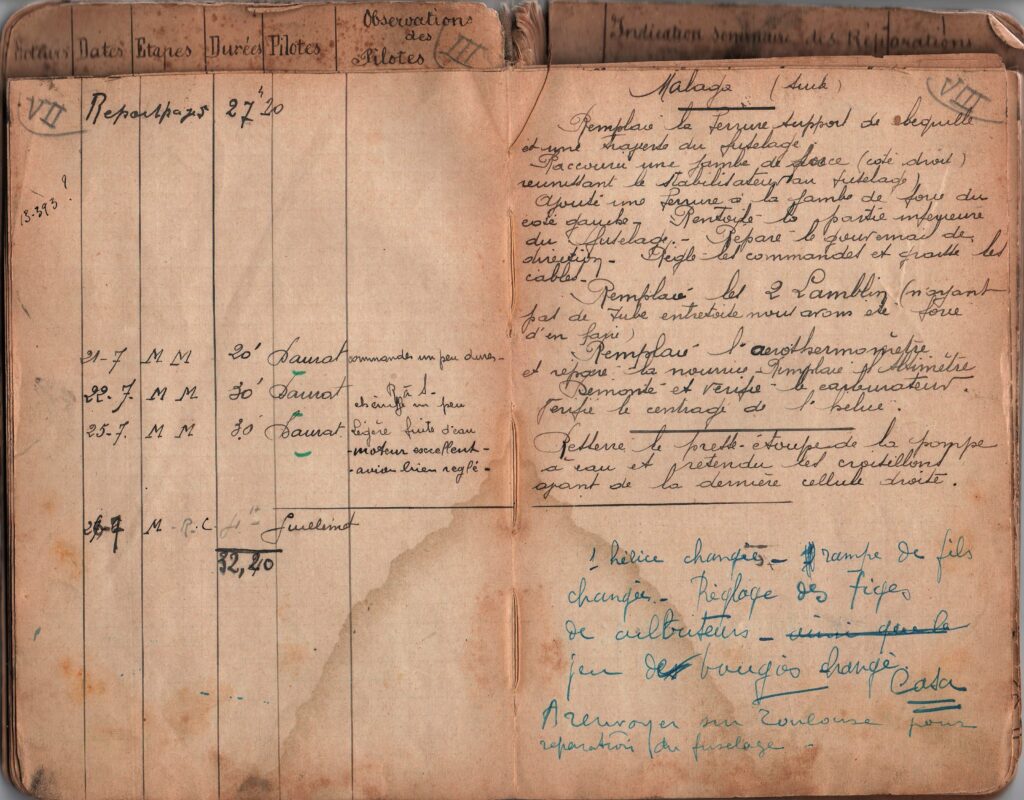 Moteurs Dates Etapes Durées Pilotes Observations
des
Pilotes
III
VII
Report pages 27h 20
13-393 ?
21-7 M M 20' Daurat commandes un peu dures -
22-7. M M 30' Daurat R à S -
chauffe un peu
25-7. M M 30' Daurat Légère fuite d'eau
- moteur excellent -
- avion bien reglé -
26-7 M - R. C. Guillemet
32,20
Indication sommaire des Réparations
Malaga (suite)
VIII
Remplacé la ferrure support de bequille
et une traverse du fuselage.
Raccourci une jambe de force (coté droit)
reunissant le stabilisateur au fuselage)
Ajouté une ferrure à la jambe de force du
coté gauche - Rentoilé la partie inferieure
du fuselage. - Réparé le gouvernail de
direction - Réglé les commandes et graissé les
cables. -
Remplacé les 2 Lamblin (n'ayant
pas de tube entretoise nous avons été forcé
d'en faire)
Remplacé l'aerothermomètre
et réparé la nourrice - Remplacé l'Altimètre
Demonté et verifié le carburateur.
Verifié le centrage de l'helice.
Resserré le presse-étoupe de la pompe
à eau et retendu les croisillons
ayant de la dernière cellule droite.
1 hélice changée. - rampe de fils
changée - Réglage des Tiges
de culbuteurs - ainsi que le
jeu de bougies changé.
Casa
A renvoyer sur Toulouse pour
reparation du fuselage -